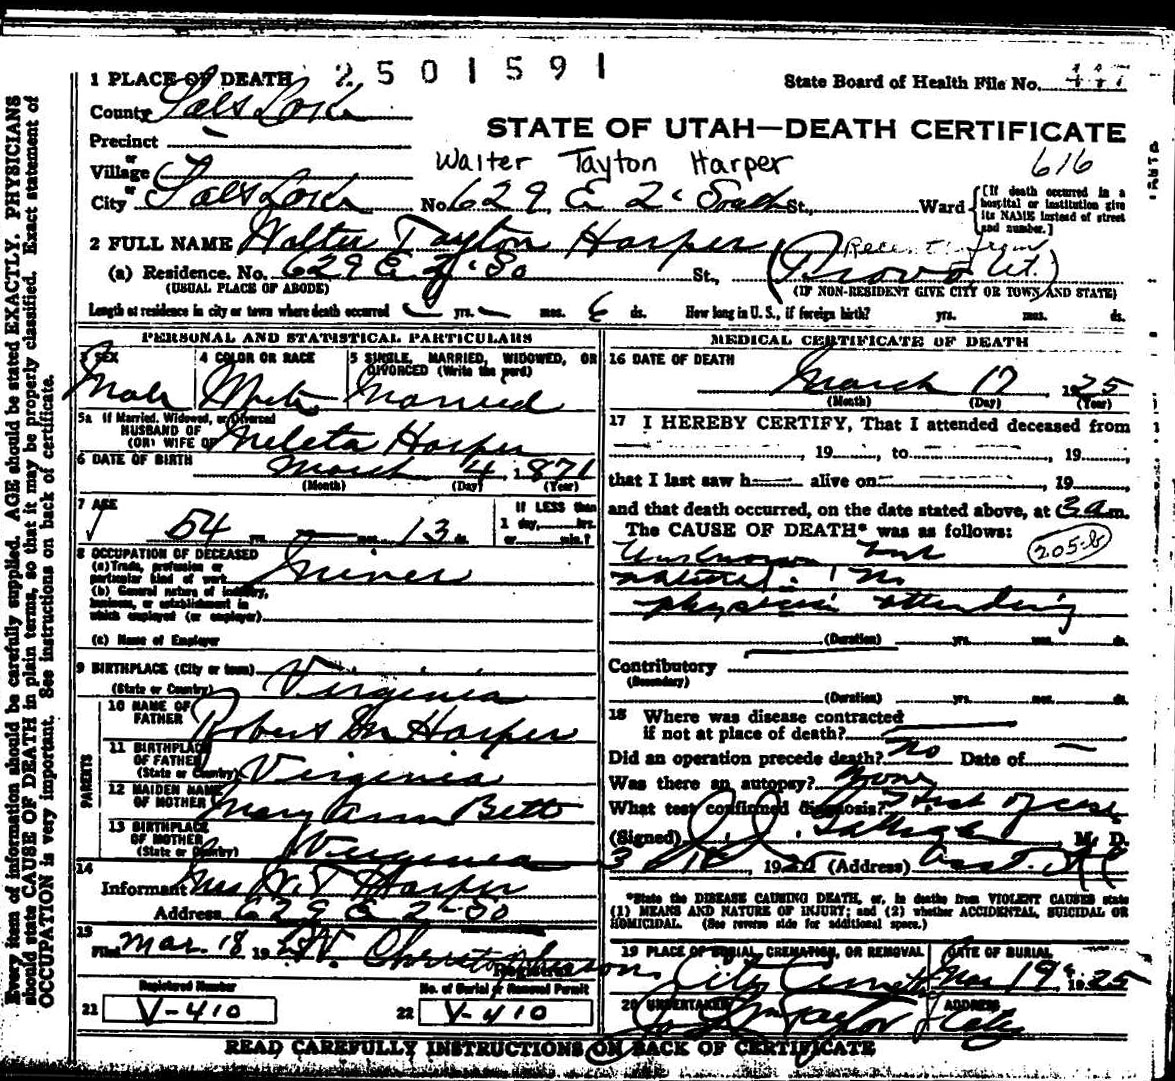 Every item of information should be carefully supplied. AGE should be stated EXACTLY. PHYSICIANS
should state CAUSE OF DEATH in plain terms, so that it may be properly classified. Exact statement of
OCCUPATION is very important. See instructions on back of certificate.
2501591
1 PLACE OF DEATH
State Board of Health File No.
County Salt Lake
STATE OF UTAH—DEATH CERTIFICATE
Precinct
or
Walter Tayton Harper
616
Village
or
City Salt Lake No. 629 E 2 South St., Ward
[If death occurred in a
hospital or institution give
its NAME instead of street
and number.]
2 FULL NAME Walter Tayton Harper
(a) Residence. No. 629 E 2 So St., (Recently from Provo, Ut.)
(USUAL PLACE OF ABODE) (IF NON-RESIDENT GIVE CITY OR TOWN AND STATE)
Length of residence in city or town where death occurred yrs. mos. 6 ds. How long in U. S., if foreign birth? yrs. mos. ds.
PERSONAL AND STATISTICAL PARTICULARS
3 SEX
Male
4 COLOR OR RACE
White
5 SINGLE, MARRIED, WIDOWED, OR
DIVORCED (Write the word)
Married
5a If Married, Widowed, or Divorced
HUSBAND OF
(OR) WIFE OF Harper
6 DATE OF BIRTH March 4, 1871
(Month) (Day) (Year)
7 AGE
54 yrs. — mos. 13 ds.
If LESS than
1 day, hrs.
or min.?
8 OCCUPATION OF DECEASED
(a) Trade, profession or
particular kind of work Miner
(b) General nature of industry,
business, or establishment in
which employed (or employer)
(c) Name of Employer
9 BIRTHPLACE (City or town)
(State or Country) Virginia
PARENTS
10 NAME OF
FATHER Robert M Harper
11 BIRTHPLACE
OF FATHER
(State or Country) Virginia
12 MAIDEN NAME
OF MOTHER Mary Ann Bett
13 BIRTHPLACE
OF MOTHER
(State or Country) Virginia
14
Informant Mrs W. T Harper
Address 629 E 2 - So
15
Filed Mar. 18 1925
Registrar
Registered Number
21 V-410
No. of Burial or Removal Permit
22 V-410
MEDICAL CERTIFICATE OF DEATH
16 DATE OF DEATH
March 17, 1925
(Month) (Day) (Year)
17 I HEREBY CERTIFY, That I attended deceased from
, 19 , to , 19 ,
that I last saw h alive on , 19 ,
and that death occurred, on the date stated above, at 3 a.m.
The CAUSE OF DEATH* was as follows:
Unknown but
natural. No
physician attending
205-b
(Duration) yrs. mos. ds.
Contributory
(Secondary)
(Duration) yrs. mos. ds.
18 Where was disease contracted
if not at place of death?
Did an operation precede death? No Date of —
Was there an autopsy? None
What test confirmed diagnosis? of case
(Signed) M. D.
3/18, 1925 (Address)
*State the DISEASE CAUSING DEATH, or, in deaths from VIOLENT CAUSES state
(1) MEANS AND NATURE OF INJURY; and (2) whether ACCIDENTAL, SUICIDAL OR
HOMICIDAL. (See reverse side for additional space.)
19 PLACE OF BURIAL, CREMATION, OR REMOVAL
City Cemetery
DATE OF BURIAL
Mar 19, 1925
20 UNDERTAKER
Jos Wm Taylor
ADDRESS
City
READ CAREFULLY INSTRUCTIONS ON BACK OF CERTIFICATE